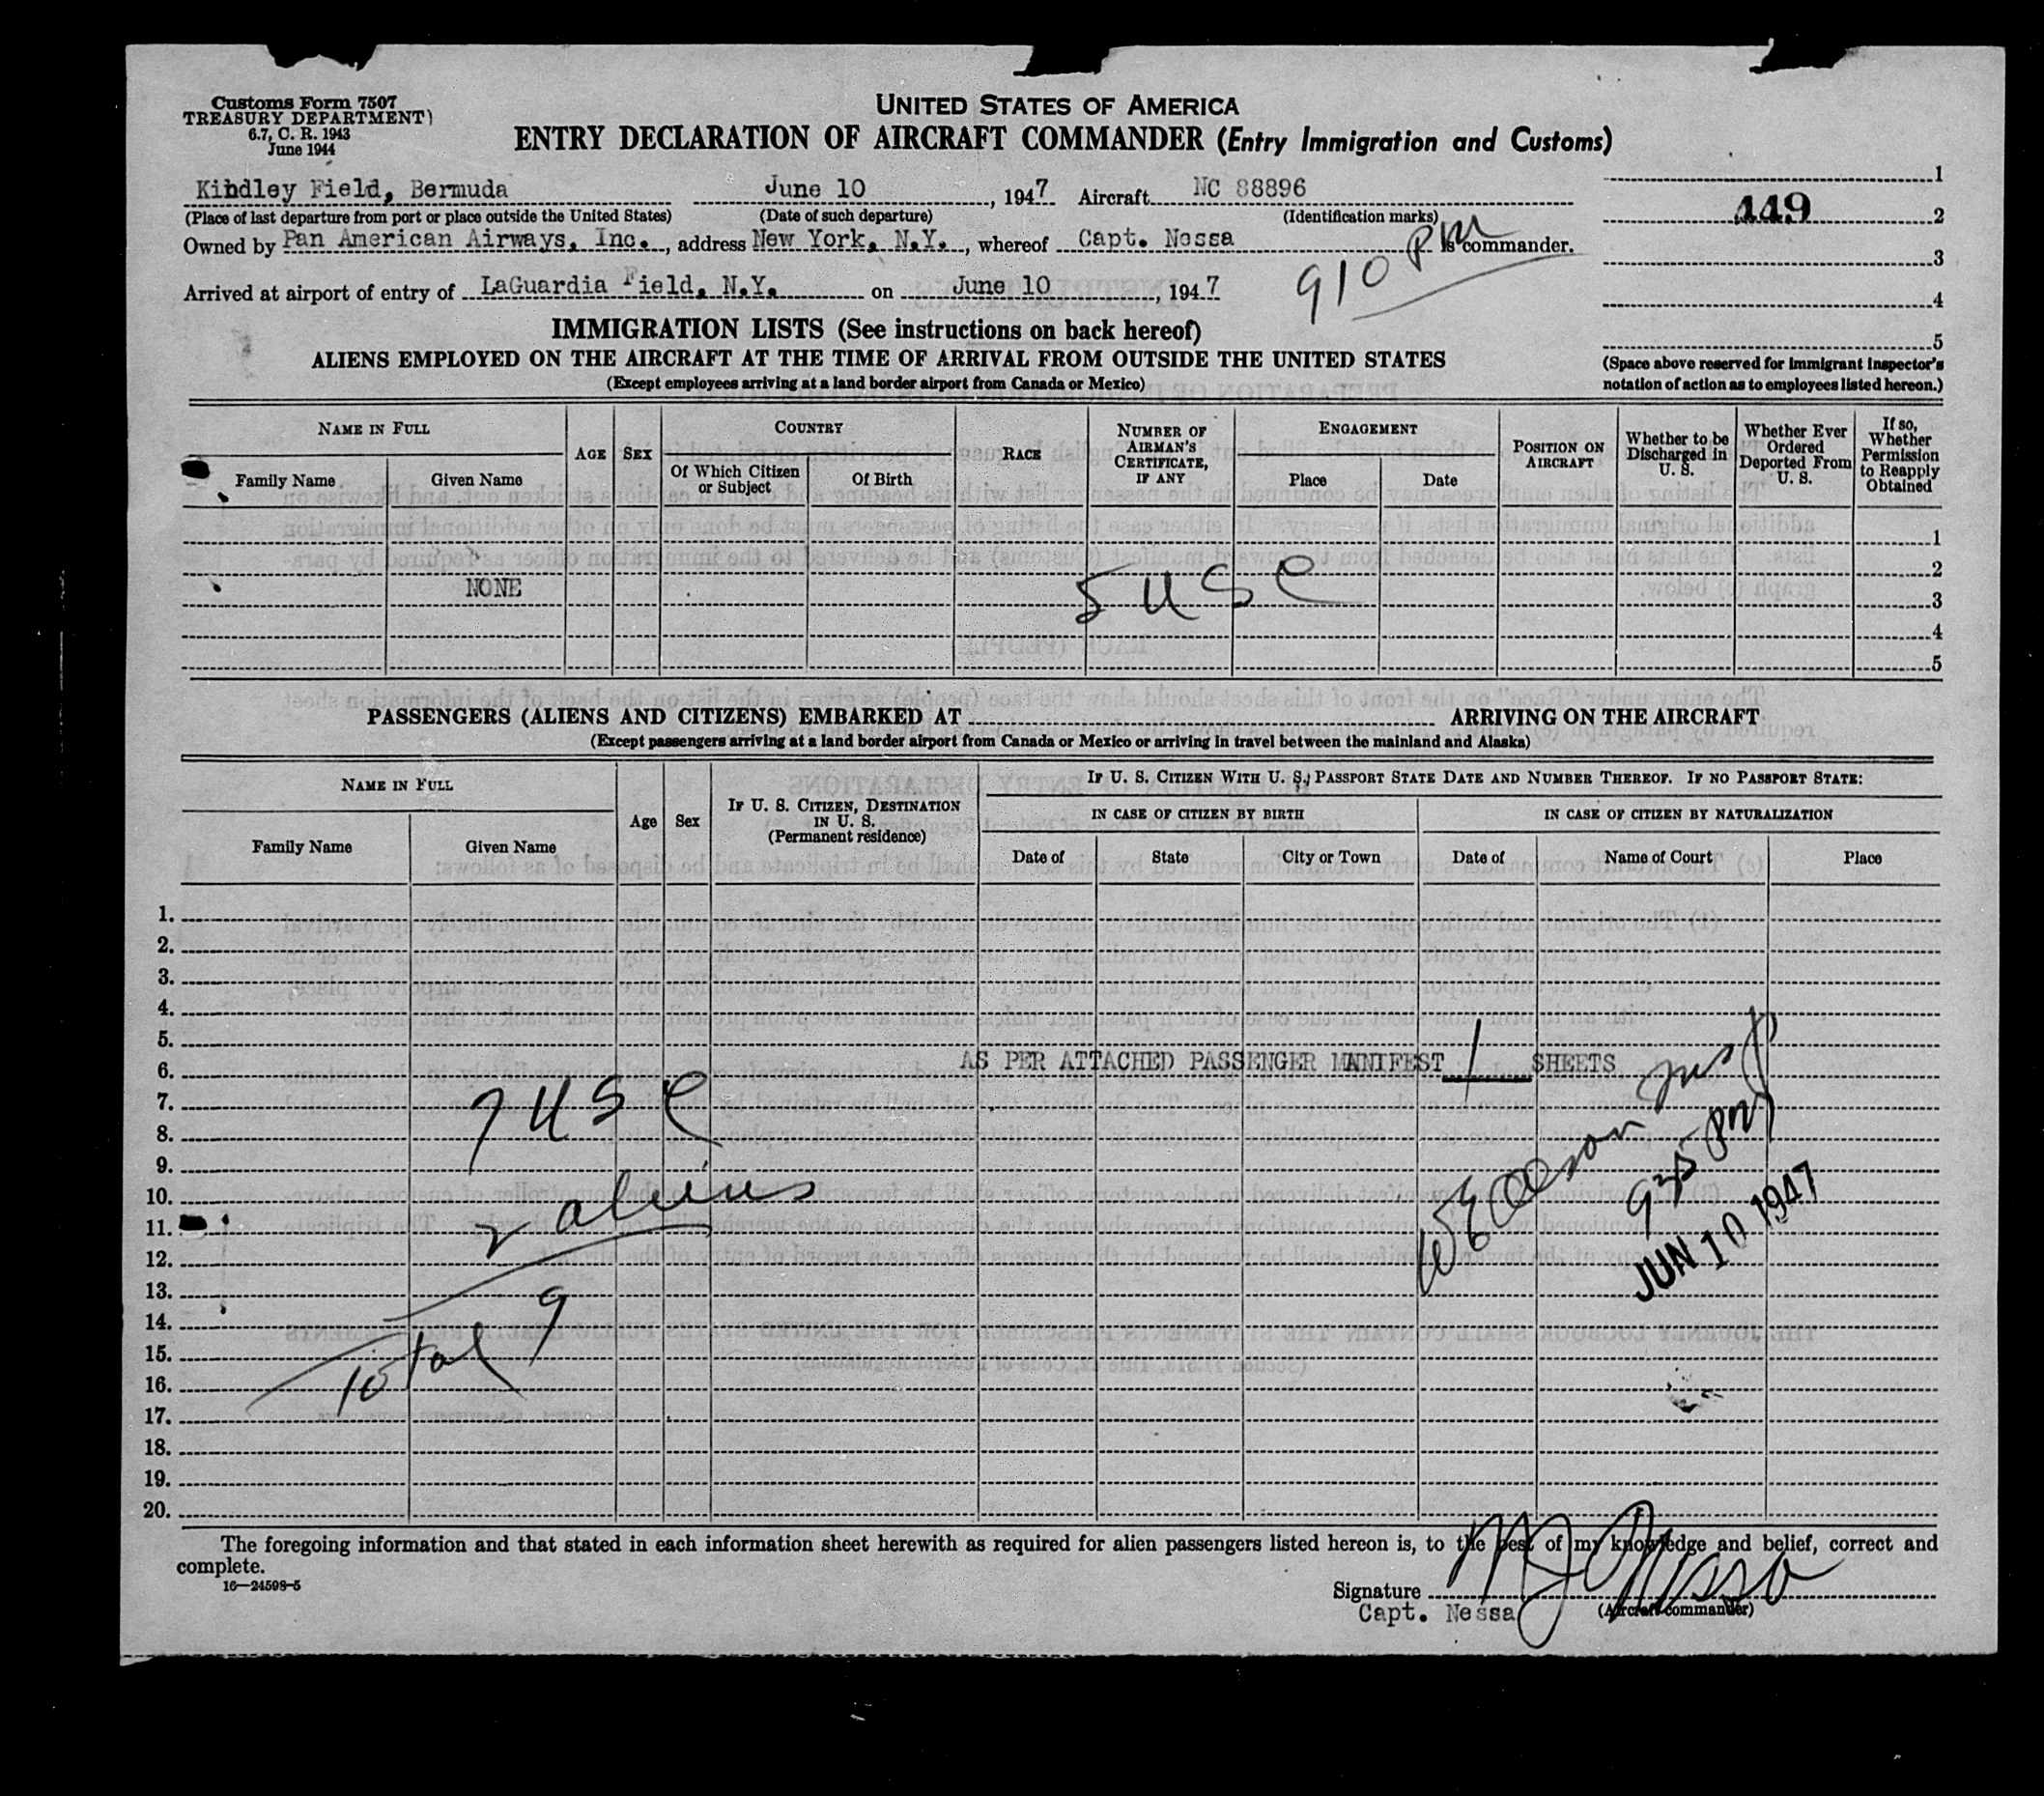 Customs Form 7507
TREASURY DEPARTMENT)
6.7, C. R. 1943
June 1944
UNITED STATES OF AMERICA
ENTRY DECLARATION OF AIRCRAFT COMMANDER (Entry Immigration and Customs)
Kindley Field, Bermuda June 10, 1947 Aircraft NC 88896
(Place of last departure from port or place outside the United States) (Date of such departure) (Identification marks)
Owned by Pan American Airways, Inc., address New York, N.Y., whereof Capt. Nessa is commander.
910 PM
Arrived at airport of entry of LaGuardia Field, N.Y. on June 10, 1947
1
449 2
3
4
5
(Space above reserved for Immigrant Inspector's
notation of action as to employees listed hereon.)
IMMIGRATION LISTS (See instructions on back hereof)
ALIENS EMPLOYED ON THE AIRCRAFT AT THE TIME OF ARRIVAL FROM OUTSIDE THE UNITED STATES
(Except employees arriving at a land border airport from Canada or Mexico)
NAME IN FULL
Family Name Given Name
AGE
SEX
COUNTRY
Of Which Citizen or Subject Of Birth
RACE
NUMBER OF AIRMAN'S CERTIFICATE, IF ANY
ENGAGEMENT
Place Date
POSITION ON AIRCRAFT
Whether to be Discharged in U. S.
Whether Ever Ordered Deported From U. S.
If so, Whether Permission to Reapply Obtained
1
2
NONE 5 USC 3
4
5
PASSENGERS (ALIENS AND CITIZENS) EMBARKED AT ARRIVING ON THE AIRCRAFT
(Except passengers arriving at a land border airport from Canada or Mexico or arriving in travel between the mainland and Alaska)
NAME IN FULL
Family Name Given Name
Age
Sex
IF U. S. CITIZEN, DESTINATION IN U. S. (Permanent residence)
IF U. S. CITIZEN WITH U. S. PASSPORT STATE DATE AND NUMBER THEREOF. IF NO PASSPORT STATE:
IN CASE OF CITIZEN BY BIRTH IN CASE OF CITIZEN BY NATURALIZATION
Date of State City or Town Date of Name of Court Place
1.
2.
3.
4.
5.
6. AS PER ATTACHED PASSENGER MANIFEST 1 SHEETS
7. 7 USC
8.
9.
10. 2 aliens
11.
12. JUN 10 1947
13.
14. Total 9
15.
16.
17.
18.
19.
20.
The foregoing information and that stated in each information sheet herewith as required for alien passengers listed hereon is, to the best of my knowledge and belief, correct and
complete.
16—24598-5
Signature
Capt. Nessa (Aircraft commander)